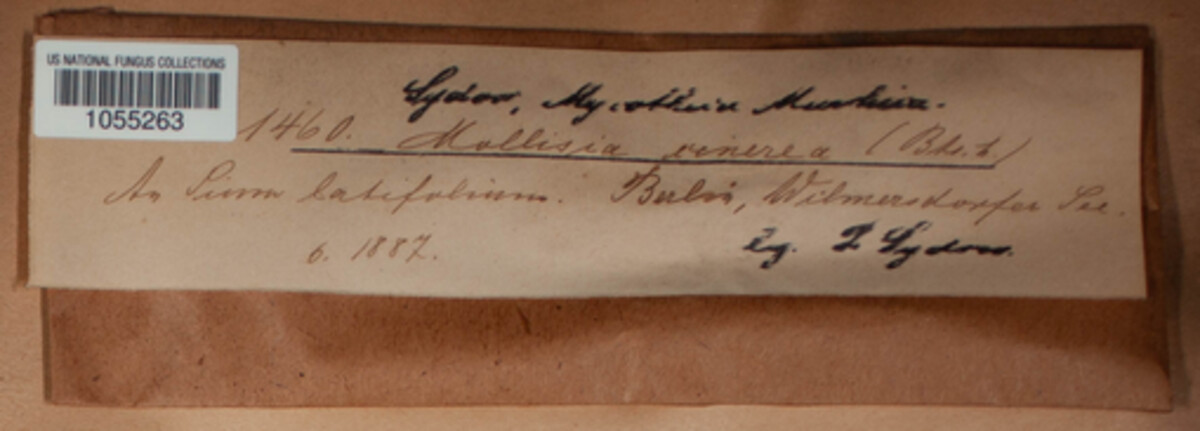 US NATIONAL FUNGUS COLLECTIONS
1055263
Sydow, Mycotheca Marchica.
1460. Mollisia cinerea (Btsch.)
An Sium latifolium. Berlin, Wilmersdorfer See.
6. 1887. lg. P. Sydow.